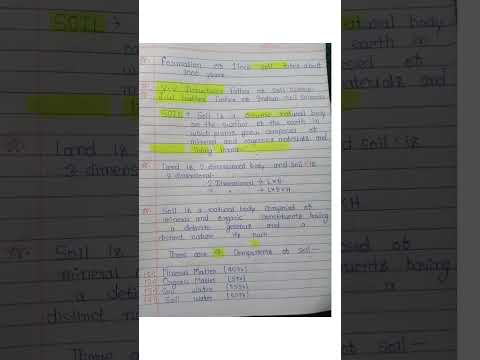 Formation of 1 inch soil takes about
years
V.V Dokuchaev father of soil science
father of Indian soil science
SOIL → Soil is a dynamic natural body
on the surface of the earth in
which plants grow composed of
mineral and organic materials and
living
Land is 2 dimensional body and soil is
3 dimensional
2 Dimensional → L×B
" → L×B×H
Soil is a natural body composed of
mineral and organic constituents having
a definite genesis and a
distinct nature its own
There are 4 Components of soil —
Mineral Matter (45%)
Organic Matter (5%)
Soil water (25%)
Soil